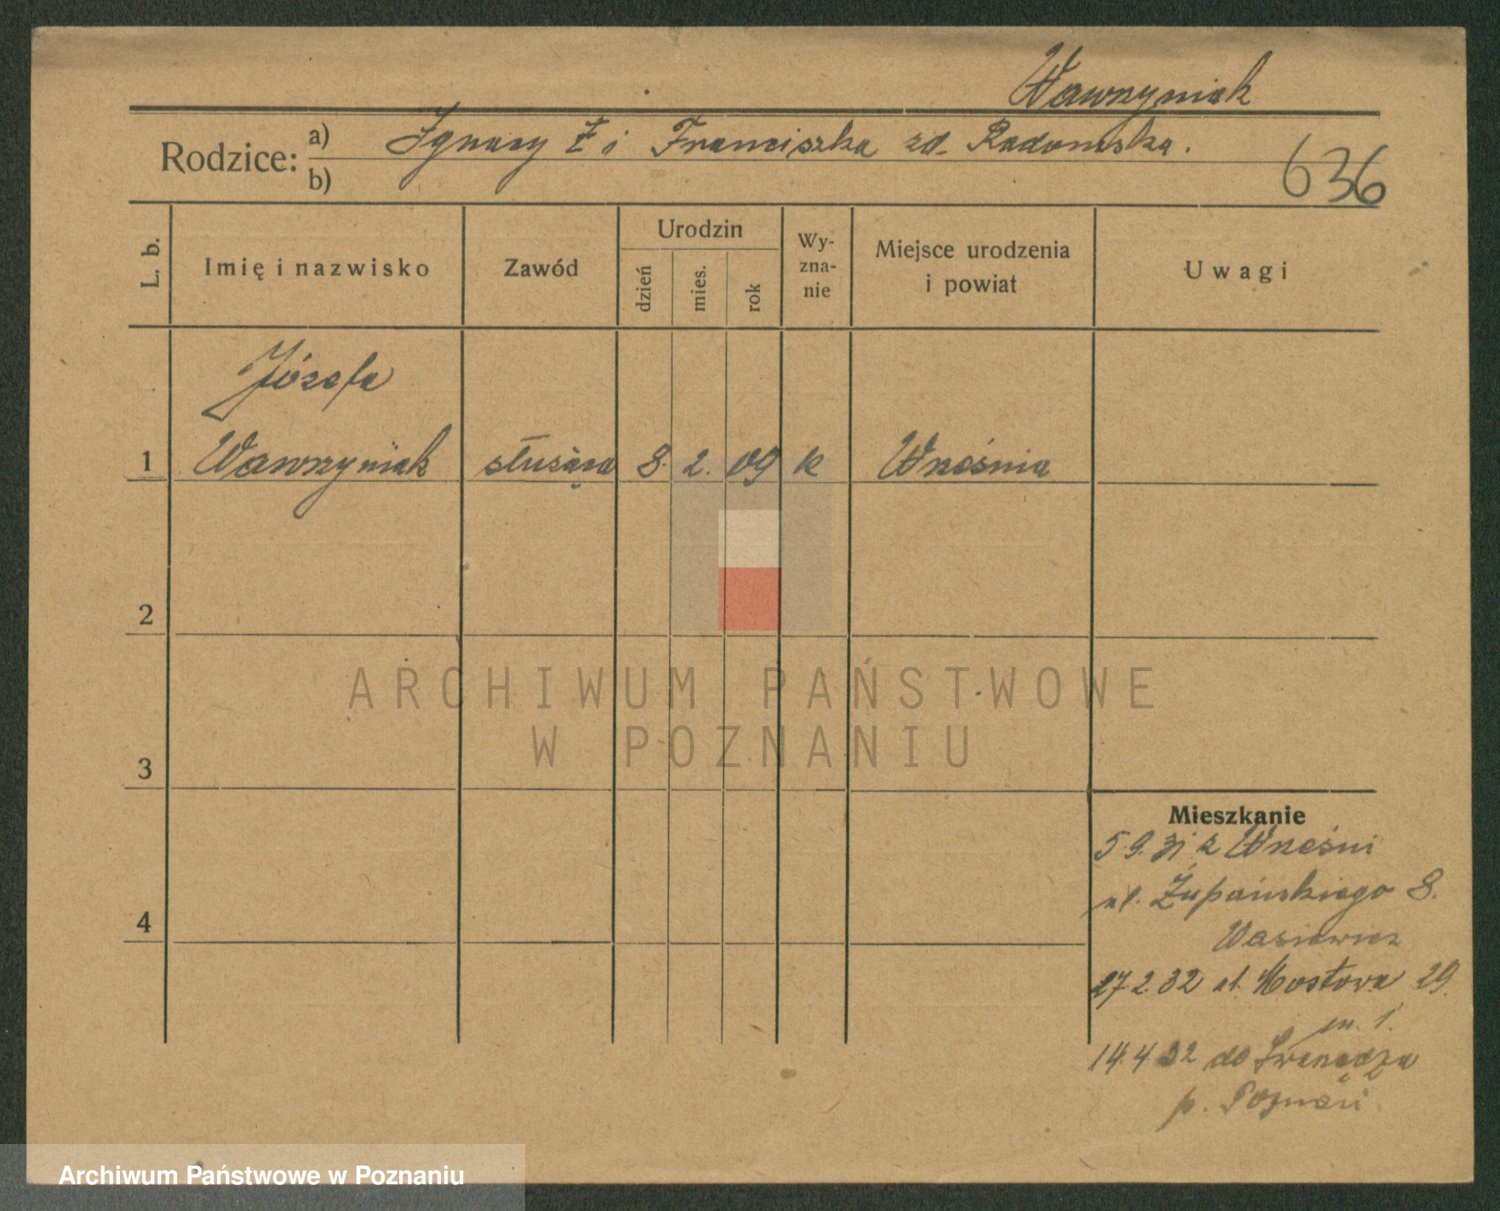 Wawrzyniak
Rodzice: a) Ignacy Ł i Franciszka zd. Radomska.
b)
636
L. b.
Imię i nazwisko
Zawód
Urodzin
dzień
mies.
rok
Wy-
zna-
nie
Miejsce urodzenia
i powiat
Uwagi
Józefa
1 Wawrzyniak służąca 8. 2. 09 k Września
2
3
4
ARCHIWUM PAŃSTWOWE
W POZNANIU
Mieszkanie
5.9.31 z Wrześni
ul. Żupańskiego 8.
Wasiewicz
27.2.32 ul. Mostowa 29.
m. 1.
14.4.32 do
p. Poznań
Archiwum Państwowe w Poznaniu